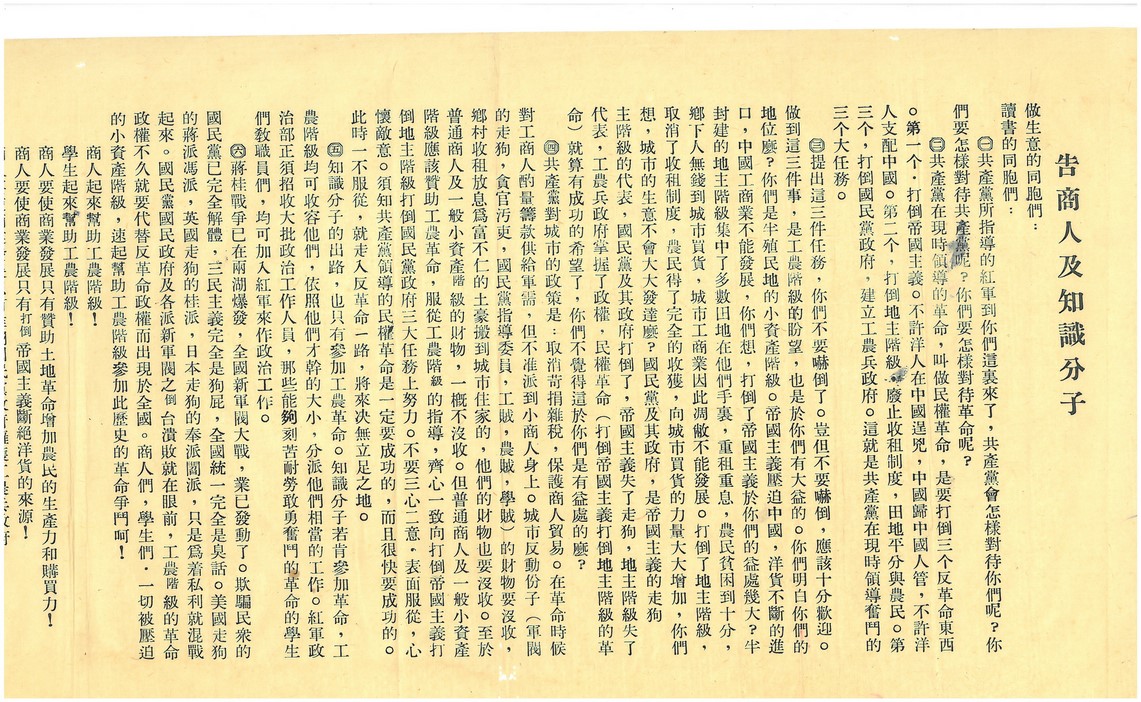 告商人及知識分子
做生意的同胞們：
讀書的同胞們：
㊀共產黨所指導的紅軍到你們這裏來了，共產黨會怎樣對待你們呢？你
們要怎樣對待共產黨呢？你們要怎樣對待革命呢？
㊁共產黨在現時領導的革命，叫做民權革命，是要打倒三個反革命東西
。第一个．打倒帝國主義。不許洋人在中國逞兇，中國歸中國人管，不許洋
人支配中國。第二个，打倒地主階級。廢止收租制度，田地平分與農民。第
三个，打倒國民黨政府，建立工農兵政府。這就是共產黨在現時領導奮鬥的
三个大任務。
㊂提出這三件任務，你們不要嚇倒了。豈但不要嚇倒，應該十分歡迎。
做到這三件事，是工農階級的盼望，也是於你們有大益的。你們明白你們的
地位麼？你們是半殖民地的小資產階級。帝國主義壓迫中國，洋貨不斷的進
口，中國工商業不能發展，你們想，打倒了帝國主義於你們的益處幾大？半
封建的地主階級集中了多數田地在他們手裏，重租重息，農民貧困到十分，
鄉下人無錢到城市買貨，城市工商業因此凋敝不能發展。打倒了地主階級，
取消了收租制度，農民得了完全的收獲，向城市買貨的力量大大增加，你們
想，城市的生意不會大大發達麼？國民黨及其政府，是帝國主義的走狗
主階級的代表，國民黨及其政府打倒了，帝國主義失了走狗，地主階級失了
代表，工農兵政府掌握了政權，民權革命（打倒帝國主義打倒地主階級的革
命）就算有成功的希望了，你們不覺得這於你們是有益處的麼？
㊃共產黨對城市的政策是：取消苛捐雜税，保護商人貿易。在革命時候
對工商人酌量籌款供給軍需，但不准派到小商人身上。城市反動份子（軍閥
的走狗，貪官污吏，國民黨指導委員，工賊，農賊，學賊）的財物要沒收，
鄉村收租放息爲富不仁的土豪搬到城市住家的，他們的財物也要沒收。至於
普通商人及一般小資產階級的財物，一概不沒收。但普通商人及一般小資產
階級應該贊助工農革命，服從工農階級的指導，齊心一致向打倒帝國主義打
倒地主階級打倒國民黨政府三大任務上努力。不要三心二意．表面服從，心
懷敵意。須知共產黨領導的民權革命是一定要成功的，而且很快要成功的。
此時一不服從，就走入反革命一路，將來决無立足之地。
㊄知識分子的出路，也只有參加工農革命。知識分子若肯參加革命，工
農階級均可收容他們，依照他們才幹的大小，分派他們相當的工作。紅軍政
治部正須招收大批政治工作人員，那些能夠刻苦耐勞敢勇奮鬥的革命的學生
們敎職員們，均可加入紅軍來作政治工作。
㊅蔣桂戰爭已在兩湖爆發，全國新軍閥大戰，業已發動了。欺騙民衆的
國民黨已完全解體，三民主義完全是狗屁，全國統一完全是臭話。美國走狗
的蔣派馮派，英國走狗的桂派，日本走狗的奉派閻派，只是爲着私利就混戰
起來。國民黨國民政府及各派新軍閥之倒台潰敗就在眼前，工農階級的革命
政權不久就要代替反革命政權而出現於全國。商人們，學生們．一切被壓迫
的小資產階級，速起幫助工農階級參加此歷史的革命爭鬥呵！
商人起來幫助工農階級！
學生起來幫助工農階級！
商人要使商業發展只有贊助土地革命增加農民的生產力和購買力！
商人要使商業發展只有打倒帝國主義斷絕洋貨的來源！